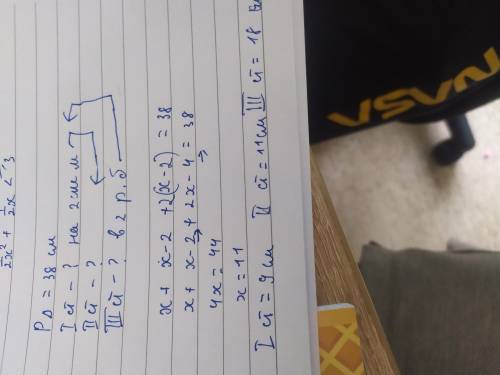 2x² + 1/2x < 3
P△ = 38 см
I ст - ? на 2 см м
II ст - ?
III ст - ? в 2 р. б
x + x - 2 + 2(x - 2) = 38
x + x - 2 + 2x - 4 = 38
4x = 44
x = 11
I ст = 9 см II ст = 11 см III ст = 18
NASA